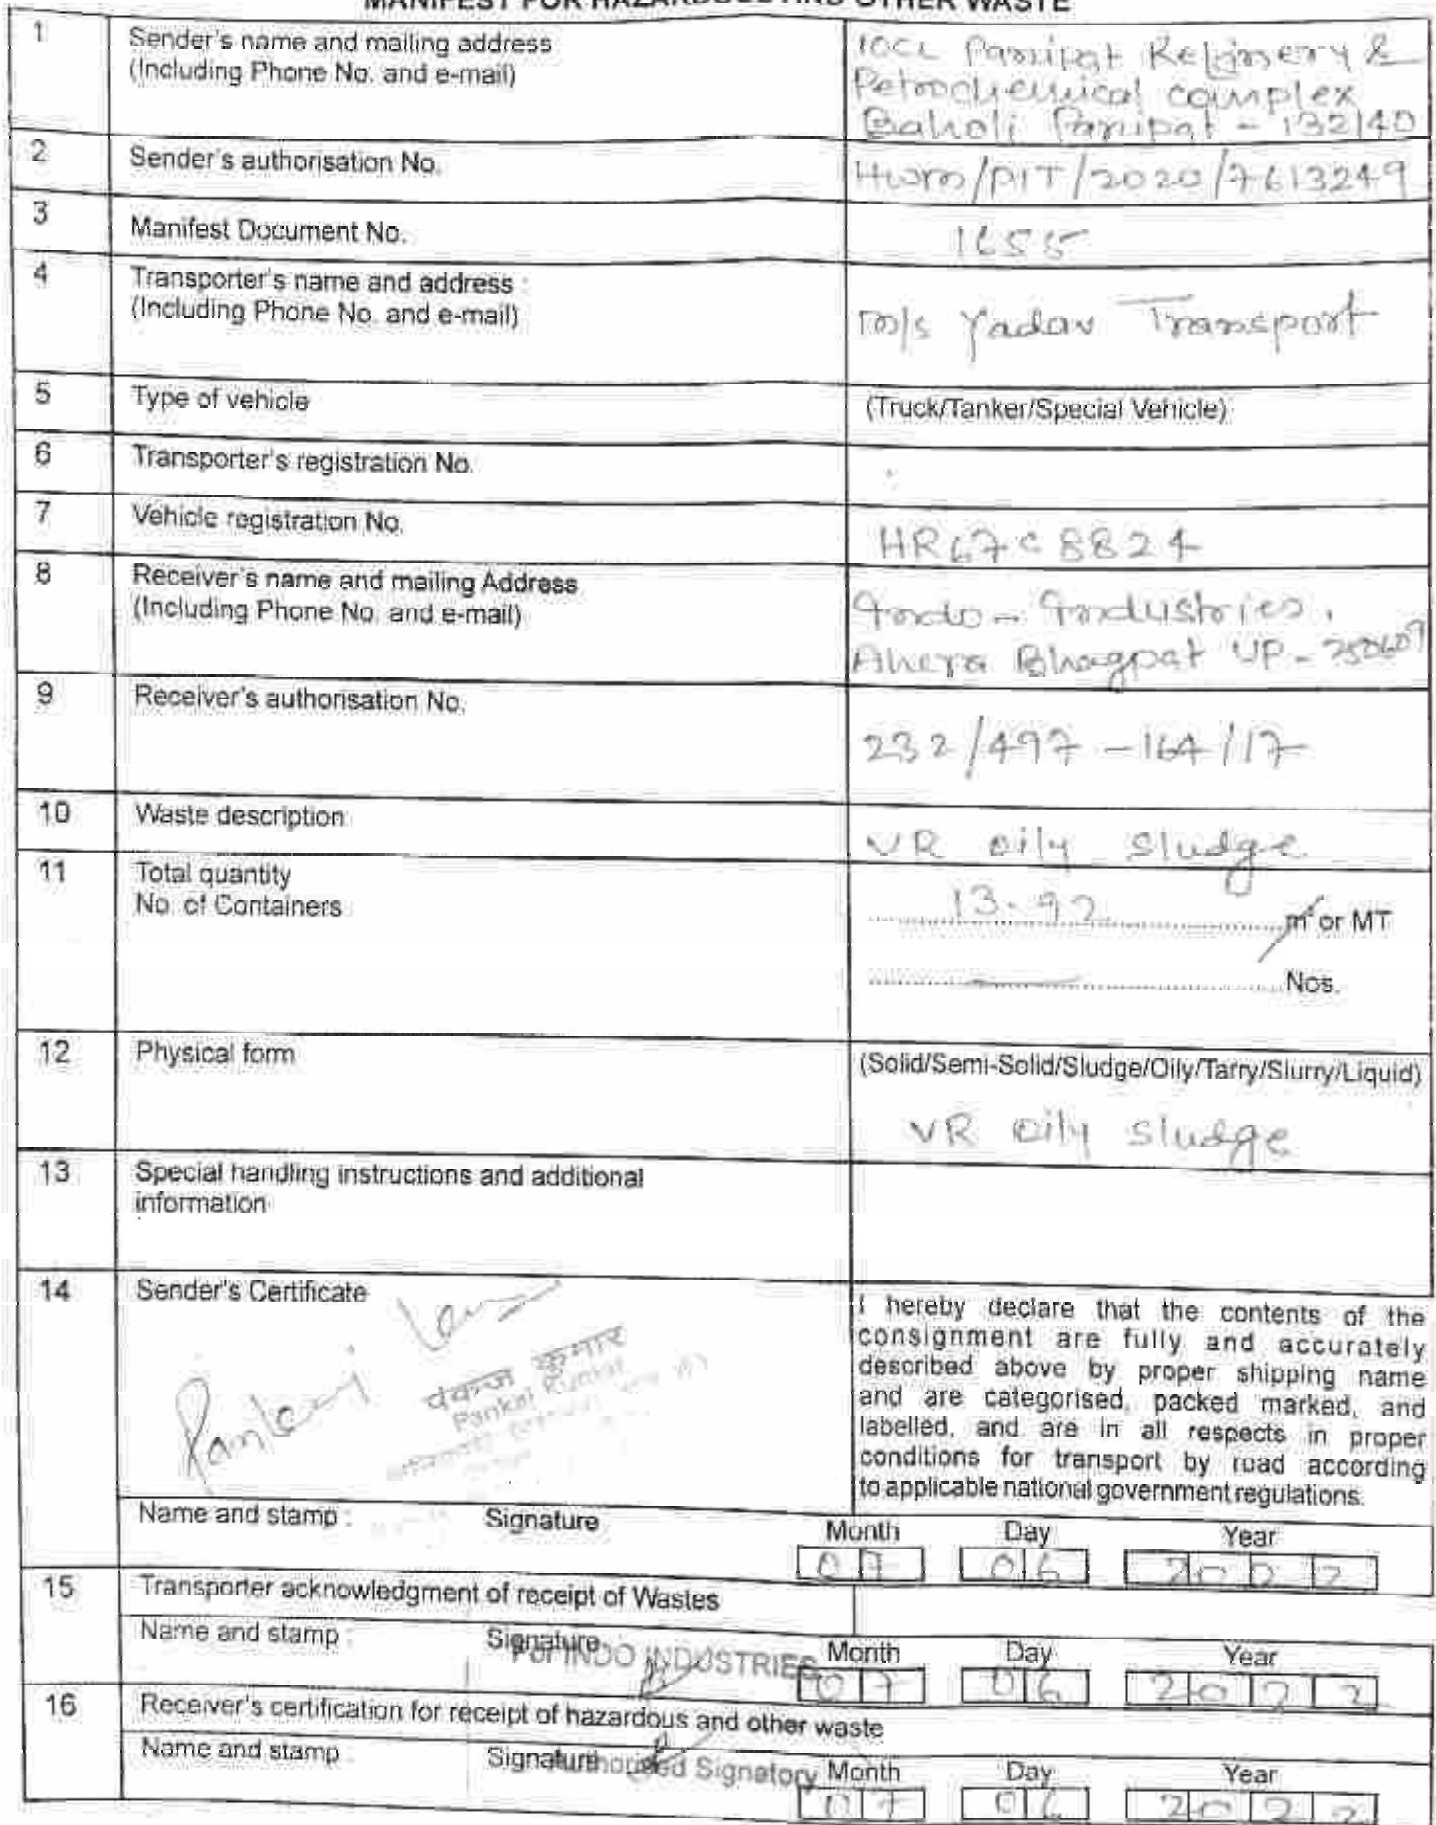 MANIFEST FOR HAZARDOUS AND OTHER WASTE
1 Sender's name and mailing address
(Including Phone No. and e-mail)
IOCL Panipat Refinery &
Petrochemical complex
Baholi Panipat - 132140
2 Sender's authorisation No.
HWM/PIT/2020/7613249
3 Manifest Document No.
1655
4 Transporter's name and address :
(Including Phone No. and e-mail)
M/s Yadav Transport
5 Type of vehicle
(Truck/Tanker/Special Vehicle)
6 Transporter's registration No.
7 Vehicle registration No.
HR67C8824
8 Receiver's name and mailing Address
(Including Phone No. and e-mail)
Indo - Industries.
Ahera Bhagpat UP - 250609
9 Receiver's authorisation No.
232/497-164/17
10 Waste description
VR oily sludge
11 Total quantity
No. of Containers
13.92 m³ or MT
— Nos.
12 Physical form
(Solid/Semi-Solid/Sludge/Oily/Tarry/Slurry/Liquid)
VR oily sludge
13 Special handling instructions and additional
information
14 Sender's Certificate
Pankaj
पंकज कुमार
Pankaj Kumar
I hereby declare that the contents of the
consignment are fully and accurately
described above by proper shipping name
and are categorised, packed marked, and
labelled, and are in all respects in proper
conditions for transport by road according
to applicable national government regulations.
Name and stamp : Signature Month Day Year
07 06 2022
15 Transporter acknowledgment of receipt of Wastes
Name and stamp : Signature Month Day Year
For INDO INDUSTRIES
07 06 2022
16 Receiver's certification for receipt of hazardous and other waste
Name and stamp Signature Month Day Year
Authorised Signatory
07 06 2022